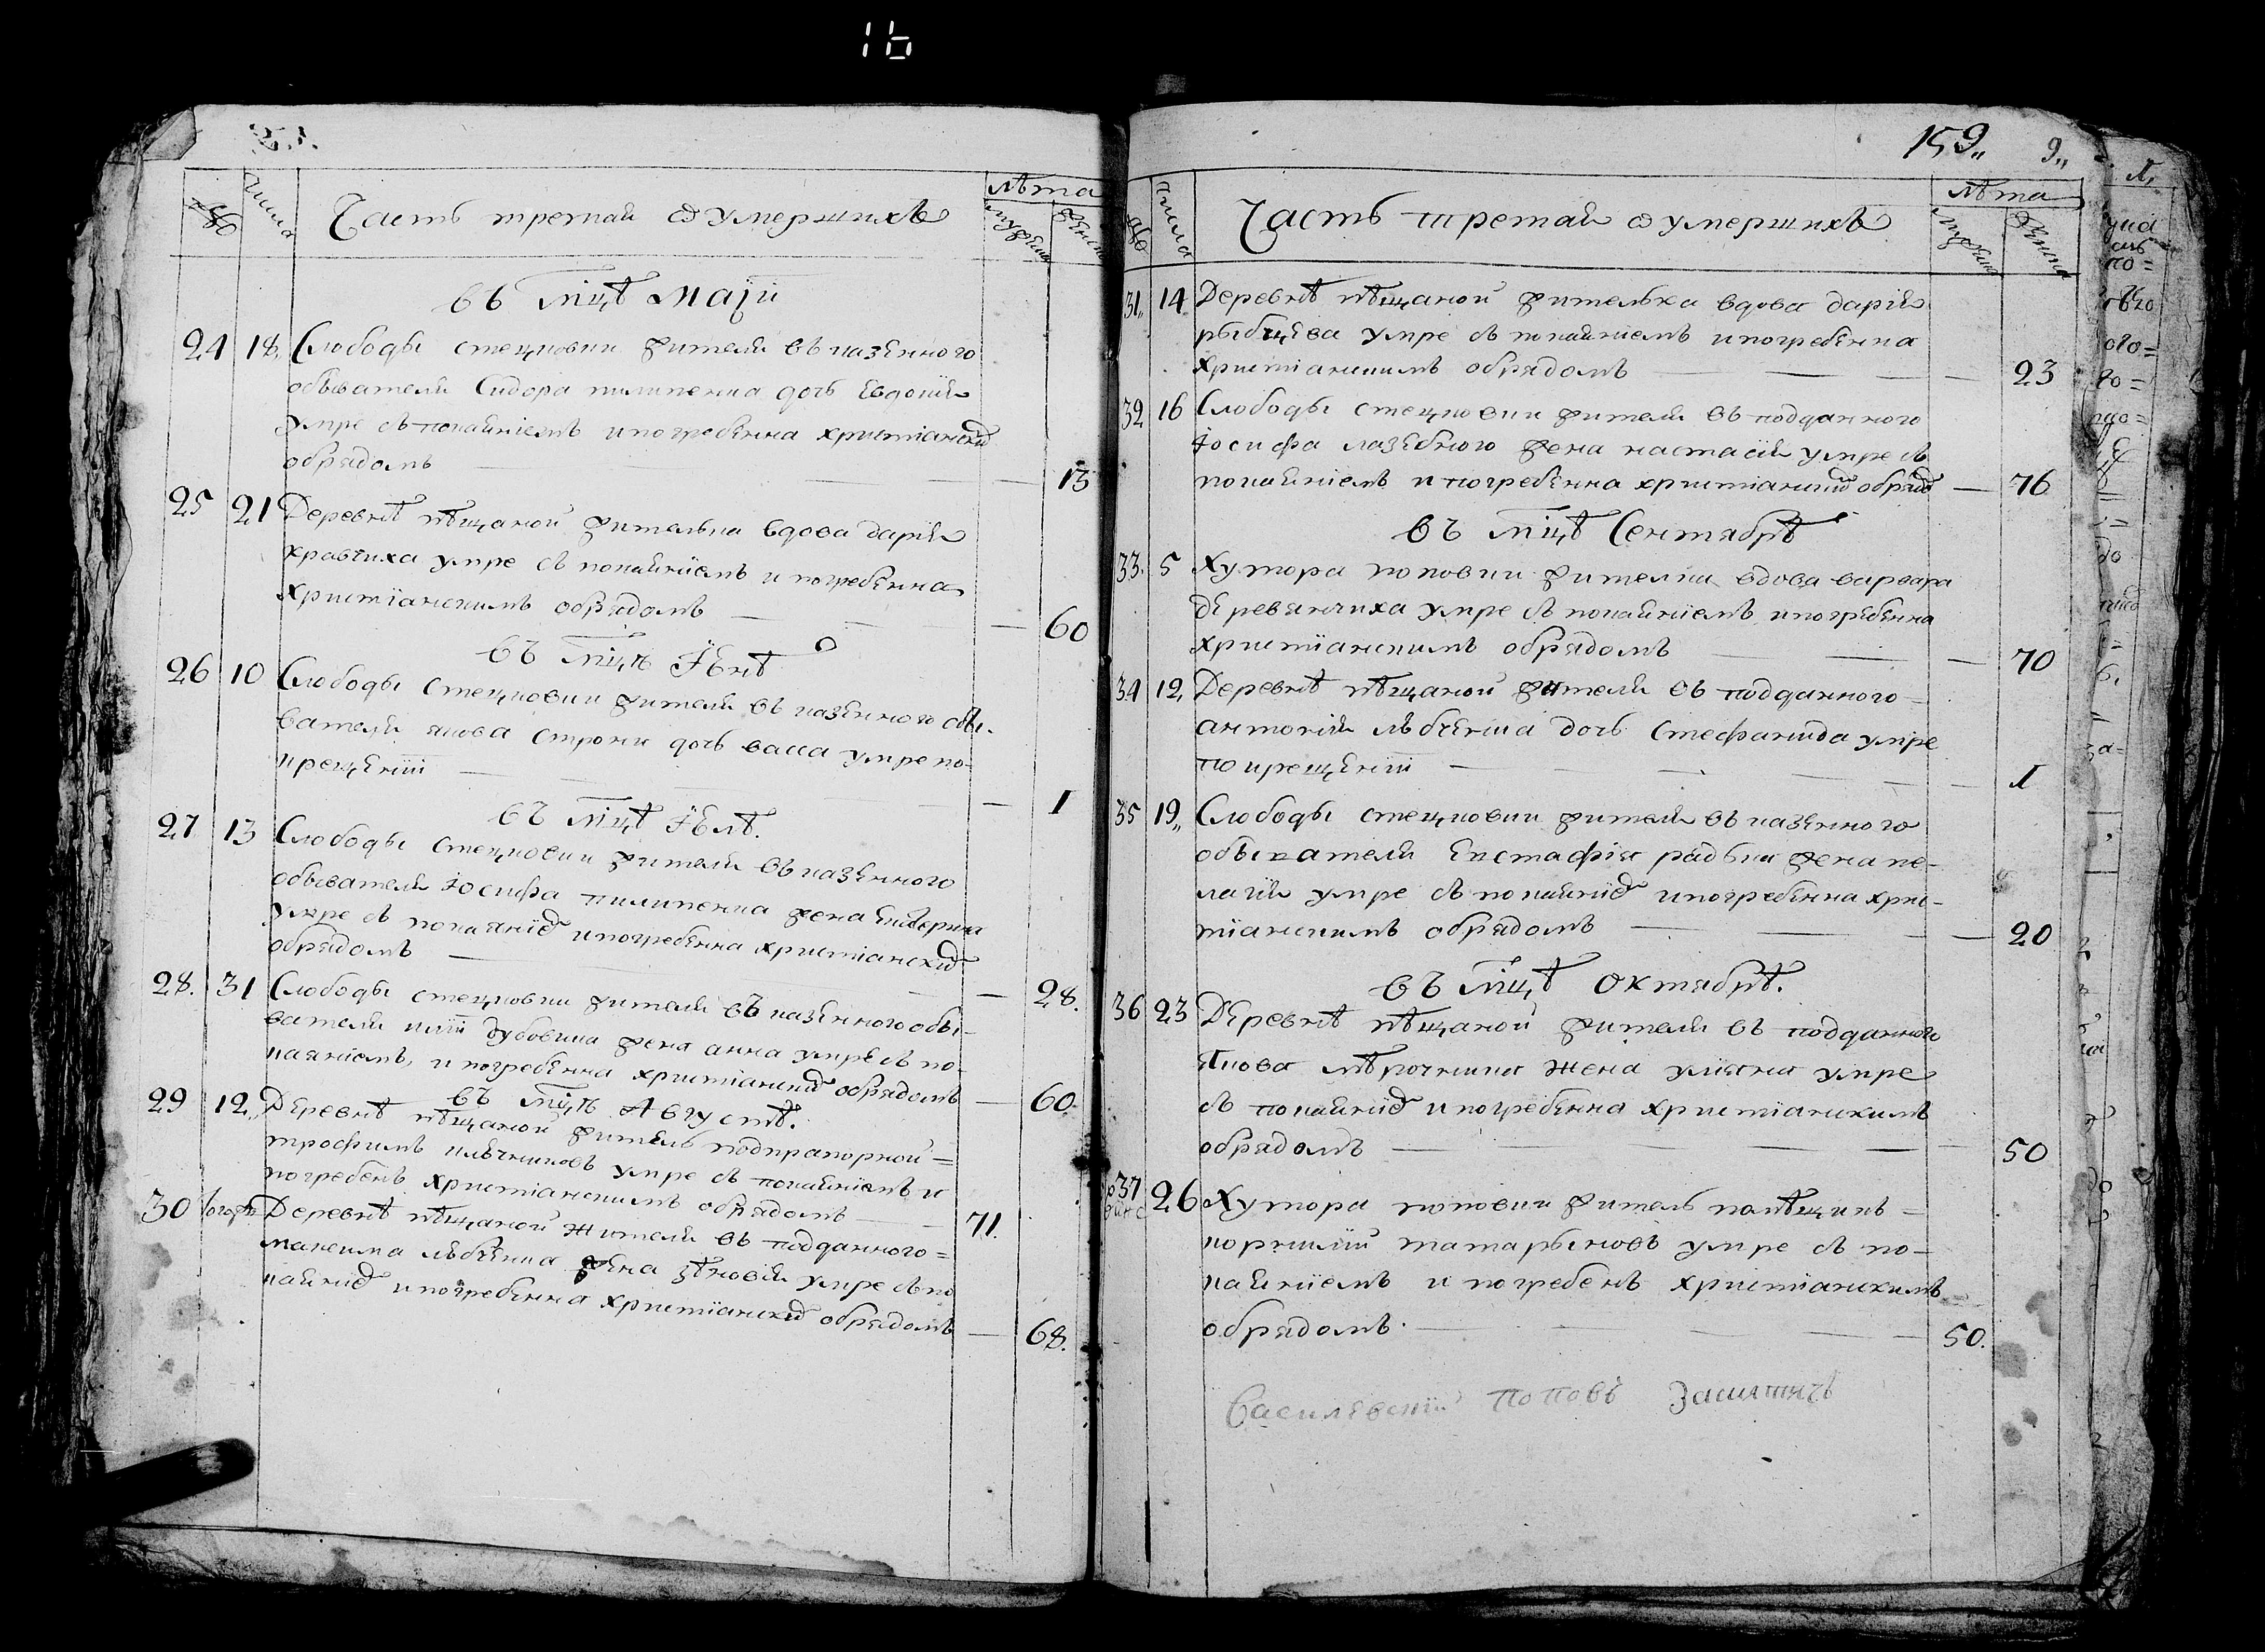 16
№
числа
Часть третая ѡ умершихъ
лѣта
мужеска
женска
въ мцѣ маїи
24 18. Слободы стецковки жителя въ казенного
обывателя Сидора пилипенка дочь Евдокия
умре съ покаяніемъ и погребенна христіански
обрядомъ — 13
25 21 Деревнѣ пѣщаной жителька вдова дарія
кравчиха умре съ покаяніемъ и погребенна
христіанскимъ обрядомъ — 60
въ мцѣ Iюнѣ
26 10 Слободы Стецковки жителя въ казенного обы-
вателя якова строки дочь васса умре по
крещеніи — 1
въ мцѣ Iюлѣ.
27 13 Слободы стецковки жителя въ казенного
обывателя Iосифа пилипенка жена Екатерина
умре съ покаяніе и погребенна христіански
обрядомъ — 28.
28. 31 Слободы стецковки жителя въ казенного обы-
вателя иліи дубовика жена анна умре съ по-
каяніемъ, и погребенна христіански обрядомъ — 60.
въ мцѣ Августѣ.
29 12 Деревнѣ пѣщаной житель подпрапорной =
трофимъ умре съ покаяніемъ и
погребенъ христіанскимъ обрядомъ — 71.
30 Деревнѣ пѣщаной жителя въ подданного =
максима жена зѣновія умре съ по
каяніе и погребенна христіански обрядомъ — 68.
159 9
№
числа
Часть третая ѡ умершихъ
лѣта
мужеска
женска
31 14 Деревнѣ пѣщаной жителька вдова дарія
рыбцѣва умре съ покаяніемъ и погребенна
христіанскимъ обрядомъ — 23
32 16 Слободы стецковки жителя въ подданного
Iосифа лазебного жена настасія умре съ
покаяніемъ и погребенна христіански обряд — 76
въ мцѣ Сентябрѣ
33. 5 Хутора поповки жителка вдова варвара
деревянчиха умре съ покаяніемъ и погребенна
христіанскимъ обрядомъ — 70
34 12 Деревнѣ пѣщаной жителя въ подданного
антонія дочь Стефанида умре
по крещеніи — 1
35 19 Слободы стецковки жителя въ казенного
обывателя Евстафія радьки жена пе-
лагія умре съ покаяніе и погребенна хри-
тіанскимъ обрядомъ — 20
въ мцѣ октябрѣ.
36 23 Деревнѣ пѣщаной жителя въ подданного
Якова мѣрочника жена уліяна умре
съ покаяніе и погребенна христіанскимъ
обрядомъ — 50
37 26 Хутора поповки житель помѣщикъ =
корнилій татарыновъ умре съ по-
каяніемъ и погребенъ христіанскимъ
обрядомъ. — 50.
Василевскій Поповъ